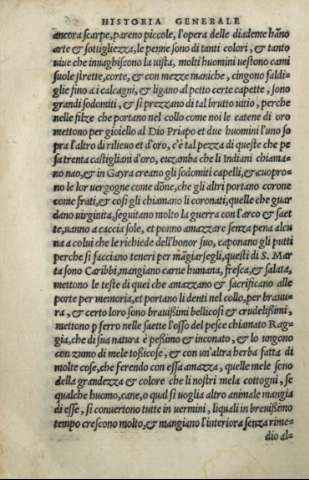 HISTORIA GENERALE
ancora scarpe, pareno piccole, l'opera delle diademe hãno
arte & sottigliezza, le penne sono di tanti colori, & tanto
viue che inuaghiscono la vista, molti huomini vestono cami
suole strette, corte, & con mezze maniche, cingono faldi-
glie fino a i calcagni, & ligano al petto certe capette, sono
grandi sodomiti, & si prezzano di tal brutto uitio, perche
nelle filze che portano nel collo come noi le catene di oro
mettono per gioiello al Dio Priapo et due huomini l'uno so
pra l'altro di rilieuo et d'oro, c'è tal pezza di queste che pe
sa trenta castigliani d'oro, euzanba che li Indiani chiama-
no nao, & in Gayra creano gli sodomiti capelli, & cuopro-
no le lor vergogne come dõne, che gli altri portano corone
come frati, & cosi gli chiamano li coronati, quelle che guar
dano virginita, seguitano molto la guerra con l'arco & saet
te, uanno a caccia sole, et ponno amazzare senza pena alcu
na a colui che le richiede dell'honor suo, caponano gli putti
perche si facciano teneri per mãgiarsegli, questi di S. Mar
ta sono Caribbi, mangiano carne humana, fresca, & salata,
mettono le teste di quei che amazzano & sacrificano alle
porte per memoria, et portano li denti nel collo, per brauu-
ra, & certo loro sono brauissimi bellicosi & crudelissimi,
mettono p ferro nelle saette l'osso del pesce chiamato Rag-
gia, che di sua natura è pessimo & inconato, & lo ungono
con zumo di mele tossicose, & con un'altra herba fatta di
molte cose, che ferendo con essa amazza, quelle mele sono
della grandezza & colore che li nostri mela cottogni, se
qualche huomo, cane, o qual si voglia altro animale mangia
di esse, si conuertono tutte in vermini, liquali in breuissimo
tempo crescono molto, & mangiano l'interiora senza rime-
dio al-